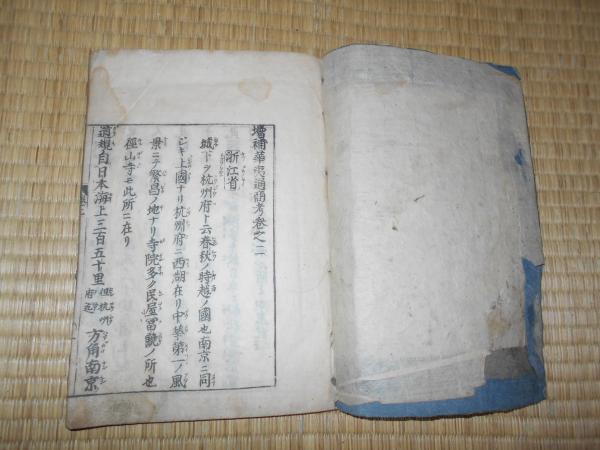 増補華夷通商考巻之二
浙江省
城下ヲ杭州府ト云春秋ノ時越ノ國也南京ニ同
ジキ上國ナリ杭州府ニ西湖在リ中華第一ノ風
景ニテ繁昌ノ地ナリ寺院多ク民屋富饒ノ所也
徑山寺モ此所ニ在リ
道規自日本海上三百五十里 但杭州府迄 方角南京